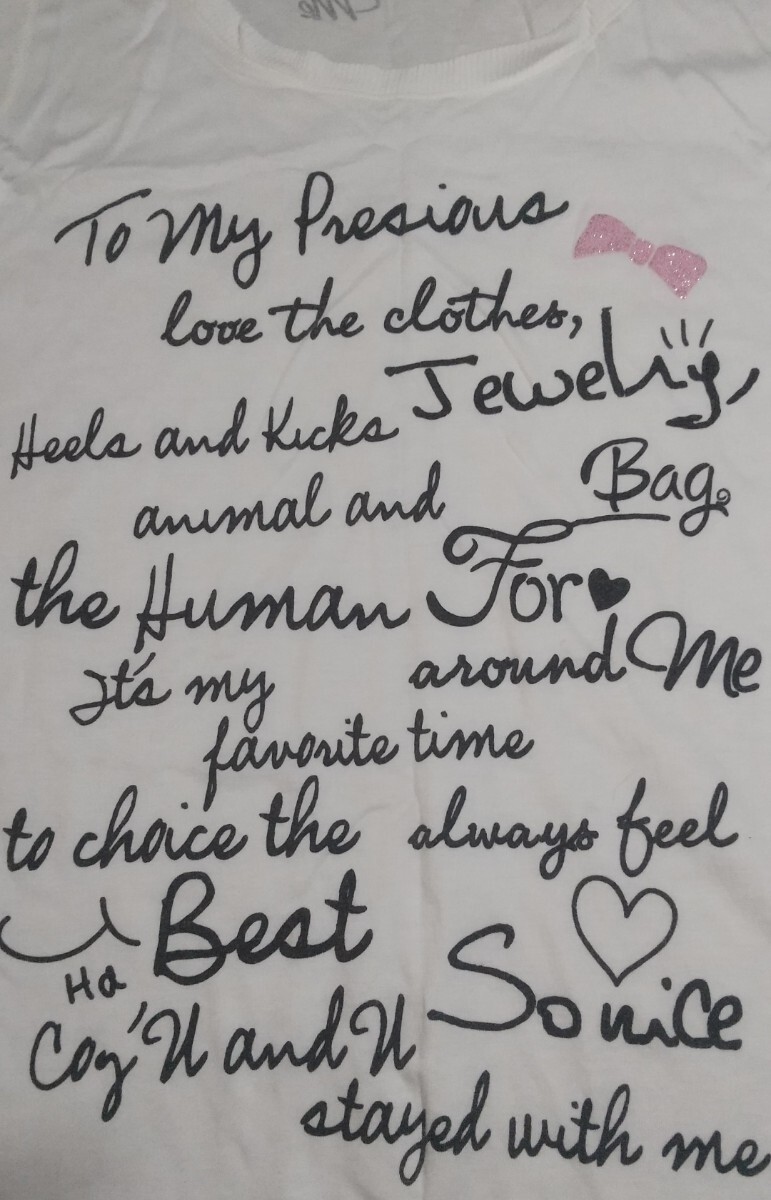 To My Presious
love the clothes,
Jewelry,
Heels and Kicks
Bag.
animal and
the Human For♥
It's my around Me
favorite time
to choice the always feel
Best
Ha
So nice
Coz'U and U
stayed with me